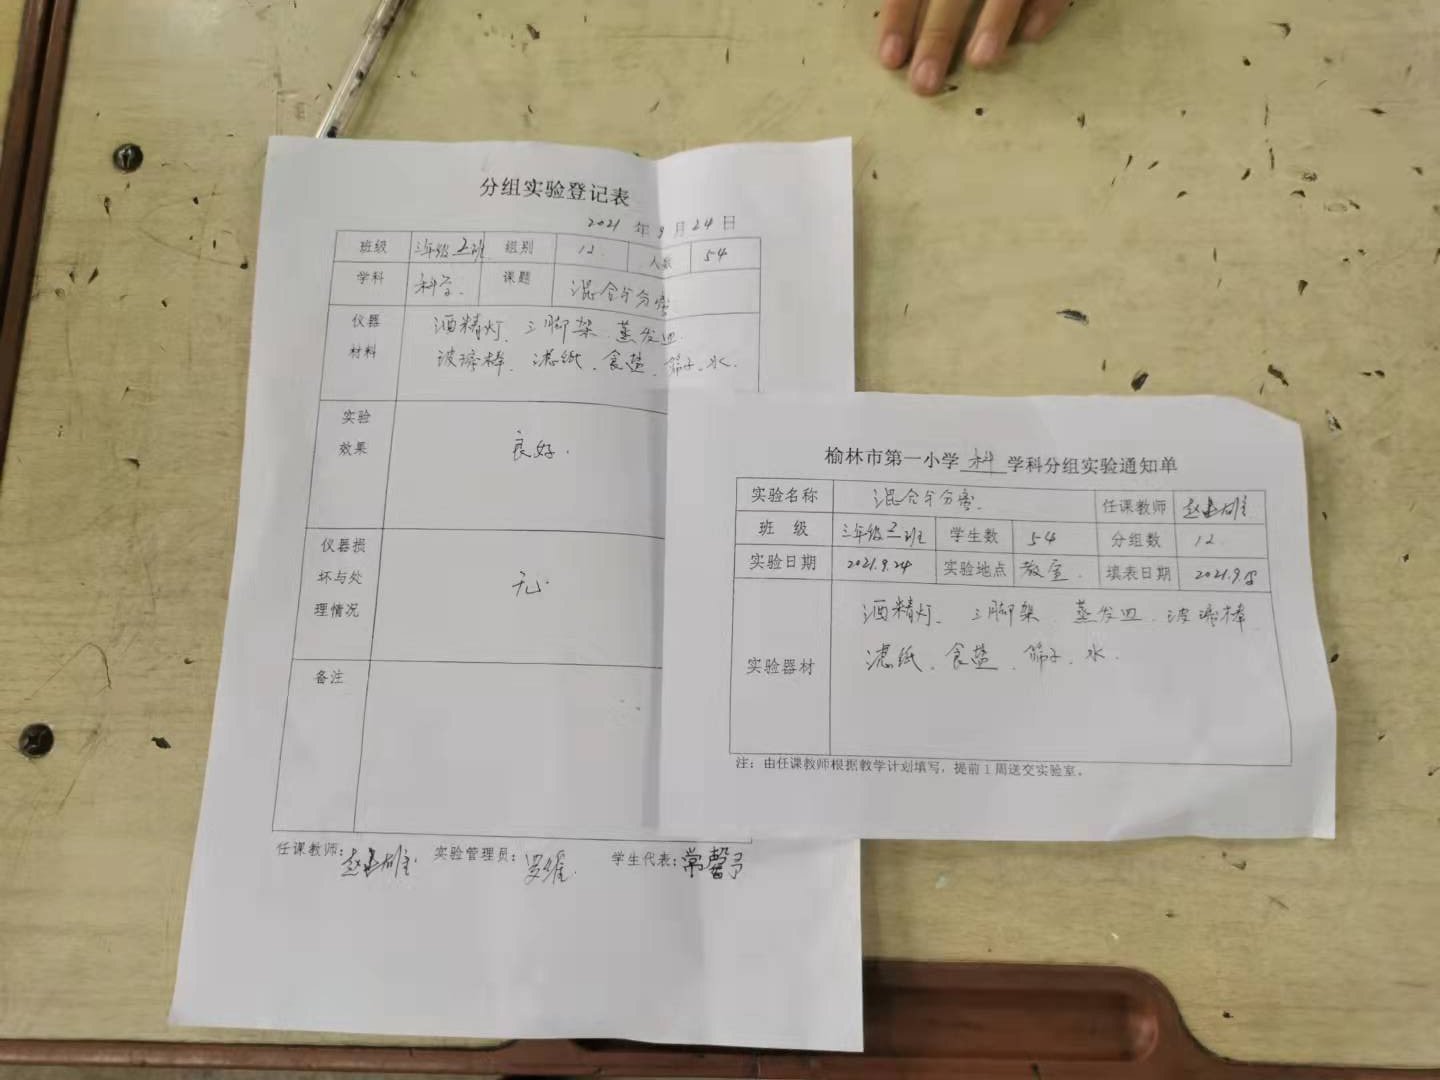 分组实验登记表
2021 年 9 月 24 日
班级 三年级2班 组别 12 人数 54
学科 科学 课题 混合与分离
仪器材料 酒精灯、三脚架、蒸发皿、
玻璃棒、滤纸、食盐、筛子、水.
实验效果 良好.
仪器损坏与处理情况 无
备注
任课教师: 实验管理员: 罗维 学生代表: 常馨予
榆林市第一小学 科 学科分组实验通知单
实验名称 混合与分离 任课教师
班 级 三年级2班 学生数 54 分组数 12
实验日期 2021.9.24 实验地点 教室 填表日期 2021.9.
实验器材 酒精灯、三脚架、蒸发皿、玻璃棒
滤纸、食盐、筛子、水.
注：由任课教师根据教学计划填写，提前1周送交实验室。